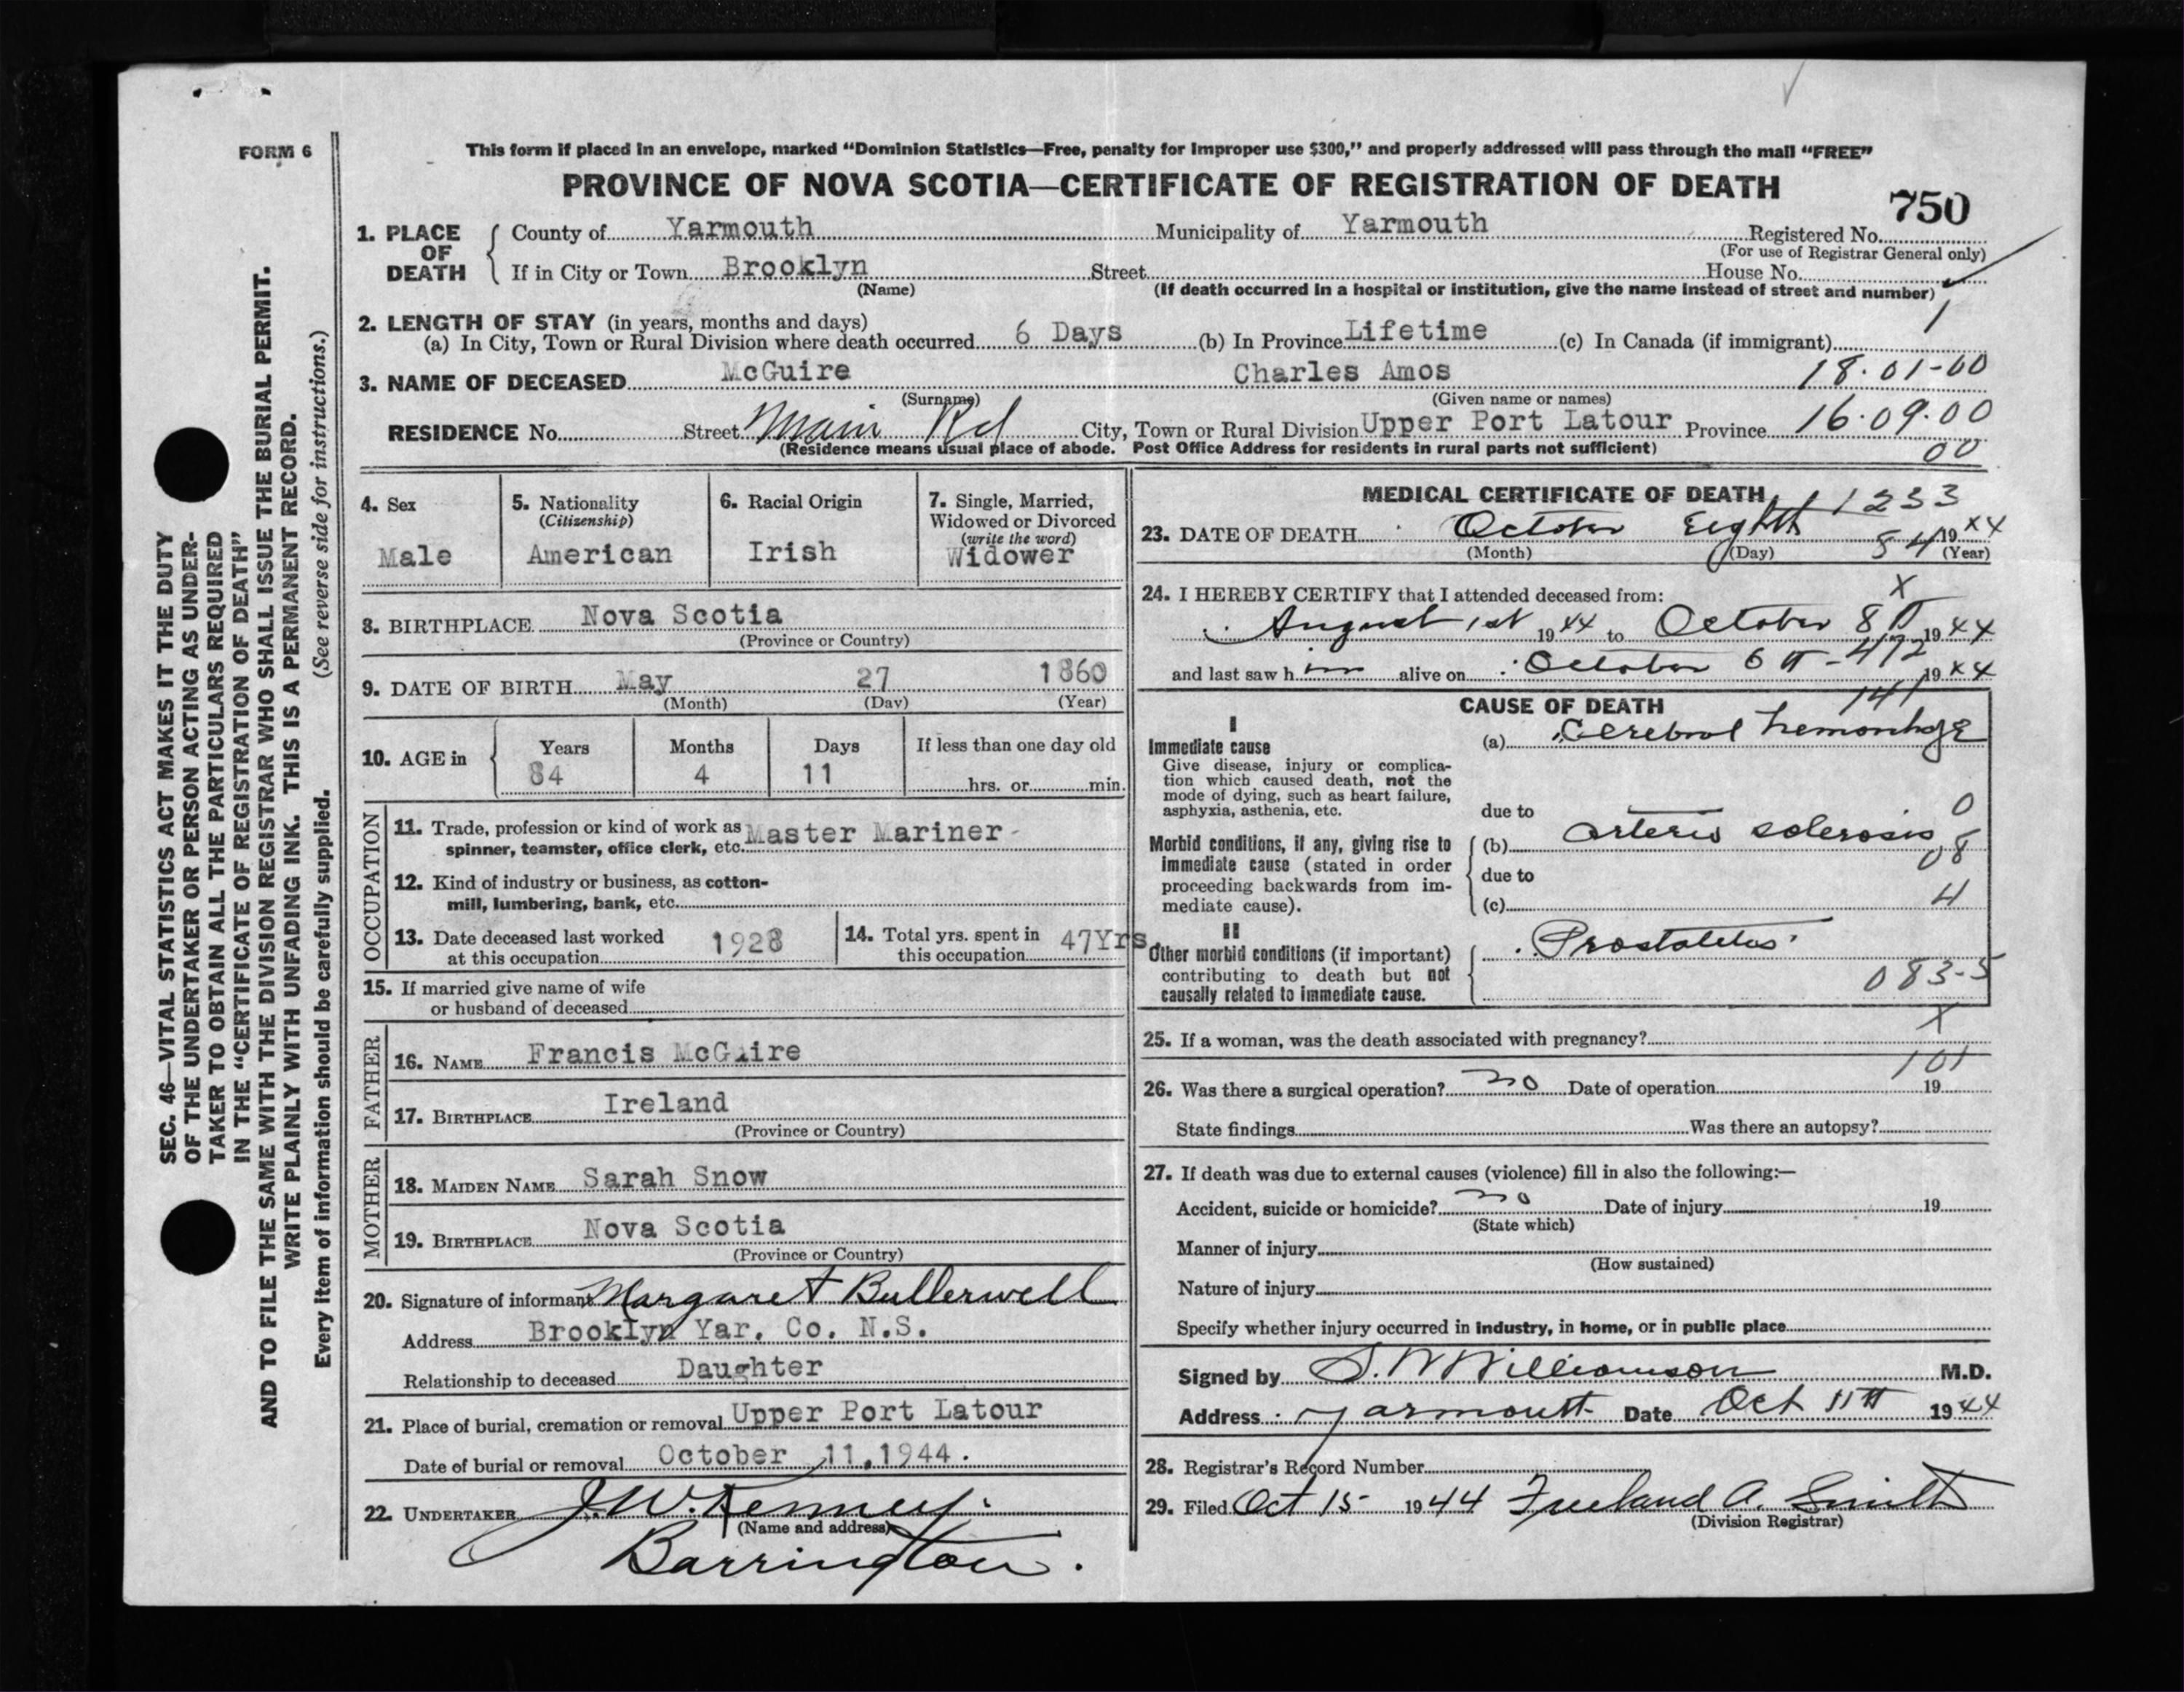 FORM 6
This form if placed in an envelope, marked “Dominion Statistics—Free, penalty for improper use $300,” and properly addressed will pass through the mail “FREE”
PROVINCE OF NOVA SCOTIA—CERTIFICATE OF REGISTRATION OF DEATH
750
1. PLACE OF DEATH
County of Yarmouth Municipality of Yarmouth Registered No.
(For use of Registrar General only)
If in City or Town Brooklyn Street House No.
(Name) (If death occurred in a hospital or institution, give the name instead of street and number)
2. LENGTH OF STAY (in years, months and days)
(a) In City, Town or Rural Division where death occurred 6 Days (b) In Province Lifetime (c) In Canada (if immigrant) 1
3. NAME OF DECEASED McGuire Charles Amos 18.01-00
(Surname) (Given name or names)
RESIDENCE No. Street Main Rd City, Town or Rural Division Upper Port Latour Province 16.09.00
(Residence means usual place of abode. Post Office Address for residents in rural parts not sufficient) 00
4. Sex
Male
5. Nationality
(Citizenship)
American
6. Racial Origin
Irish
7. Single, Married,
Widowed or Divorced
(write the word)
Widower
8. BIRTHPLACE Nova Scotia
(Province or Country)
9. DATE OF BIRTH May 27 1860
(Month) (Day) (Year)
10. AGE in Years Months Days If less than one day old
84 4 11 hrs. or min.
OCCUPATION
11. Trade, profession or kind of work as Master Mariner
spinner, teamster, office clerk, etc.
12. Kind of industry or business, as cotton-
mill, lumbering, bank, etc.
13. Date deceased last worked 1928
at this occupation
14. Total yrs. spent in 47Yrs.
this occupation
15. If married give name of wife
or husband of deceased
FATHER
16. NAME Francis McGuire
17. BIRTHPLACE Ireland
(Province or Country)
MOTHER
18. MAIDEN NAME Sarah Snow
19. BIRTHPLACE Nova Scotia
(Province or Country)
20. Signature of informant Margaret Bullerwell
Address Brooklyn Yar. Co. N.S.
Relationship to deceased Daughter
21. Place of burial, cremation or removal Upper Port Latour
Date of burial or removal October 11, 1944.
22. UNDERTAKER J.W. Kenney.
(Name and address)
Barrington.
MEDICAL CERTIFICATE OF DEATH
1233
23. DATE OF DEATH October Eighth 1944
(Month) (Day) 54 (Year)
24. I HEREBY CERTIFY that I attended deceased from: X
August 1st 1944 to October 8th 1944
and last saw him alive on October 6th 1944
CAUSE OF DEATH
I
Immediate cause
Give disease, injury or complica-
tion which caused death, not the
mode of dying, such as heart failure,
asphyxia, asthenia, etc.
(a) Cerebral hemorrhage
due to
Morbid conditions, if any, giving rise to
immediate cause (stated in order
proceeding backwards from im-
mediate cause).
(b) Arterio sclerosis
due to
(c)
0
08
4
II
Other morbid conditions (if important)
contributing to death but not
causally related to immediate cause.
Prostatitis
083-5
X
25. If a woman, was the death associated with pregnancy?
101
26. Was there a surgical operation? no Date of operation 19
State findings Was there an autopsy?
27. If death was due to external causes (violence) fill in also the following:—
Accident, suicide or homicide? no Date of injury 19
(State which)
Manner of injury
(How sustained)
Nature of injury
Specify whether injury occurred in industry, in home, or in public place
Signed by S.W Williamson M.D.
Address Yarmouth Date Oct 11th 1944
28. Registrar's Record Number
29. Filed Oct 15 1944 Freeland A. Smith
(Division Registrar)
SEC. 46—VITAL STATISTICS ACT MAKES IT THE DUTY
OF THE UNDERTAKER OR PERSON ACTING AS UNDER-
TAKER TO OBTAIN ALL THE PARTICULARS REQUIRED
IN THE “CERTIFICATE OF REGISTRATION OF DEATH”
AND TO FILE THE SAME WITH THE DIVISION REGISTRAR WHO SHALL ISSUE THE BURIAL PERMIT.
WRITE PLAINLY WITH UNFADING INK. THIS IS A PERMANENT RECORD.
Every item of information should be carefully supplied. (See reverse side for instructions.)